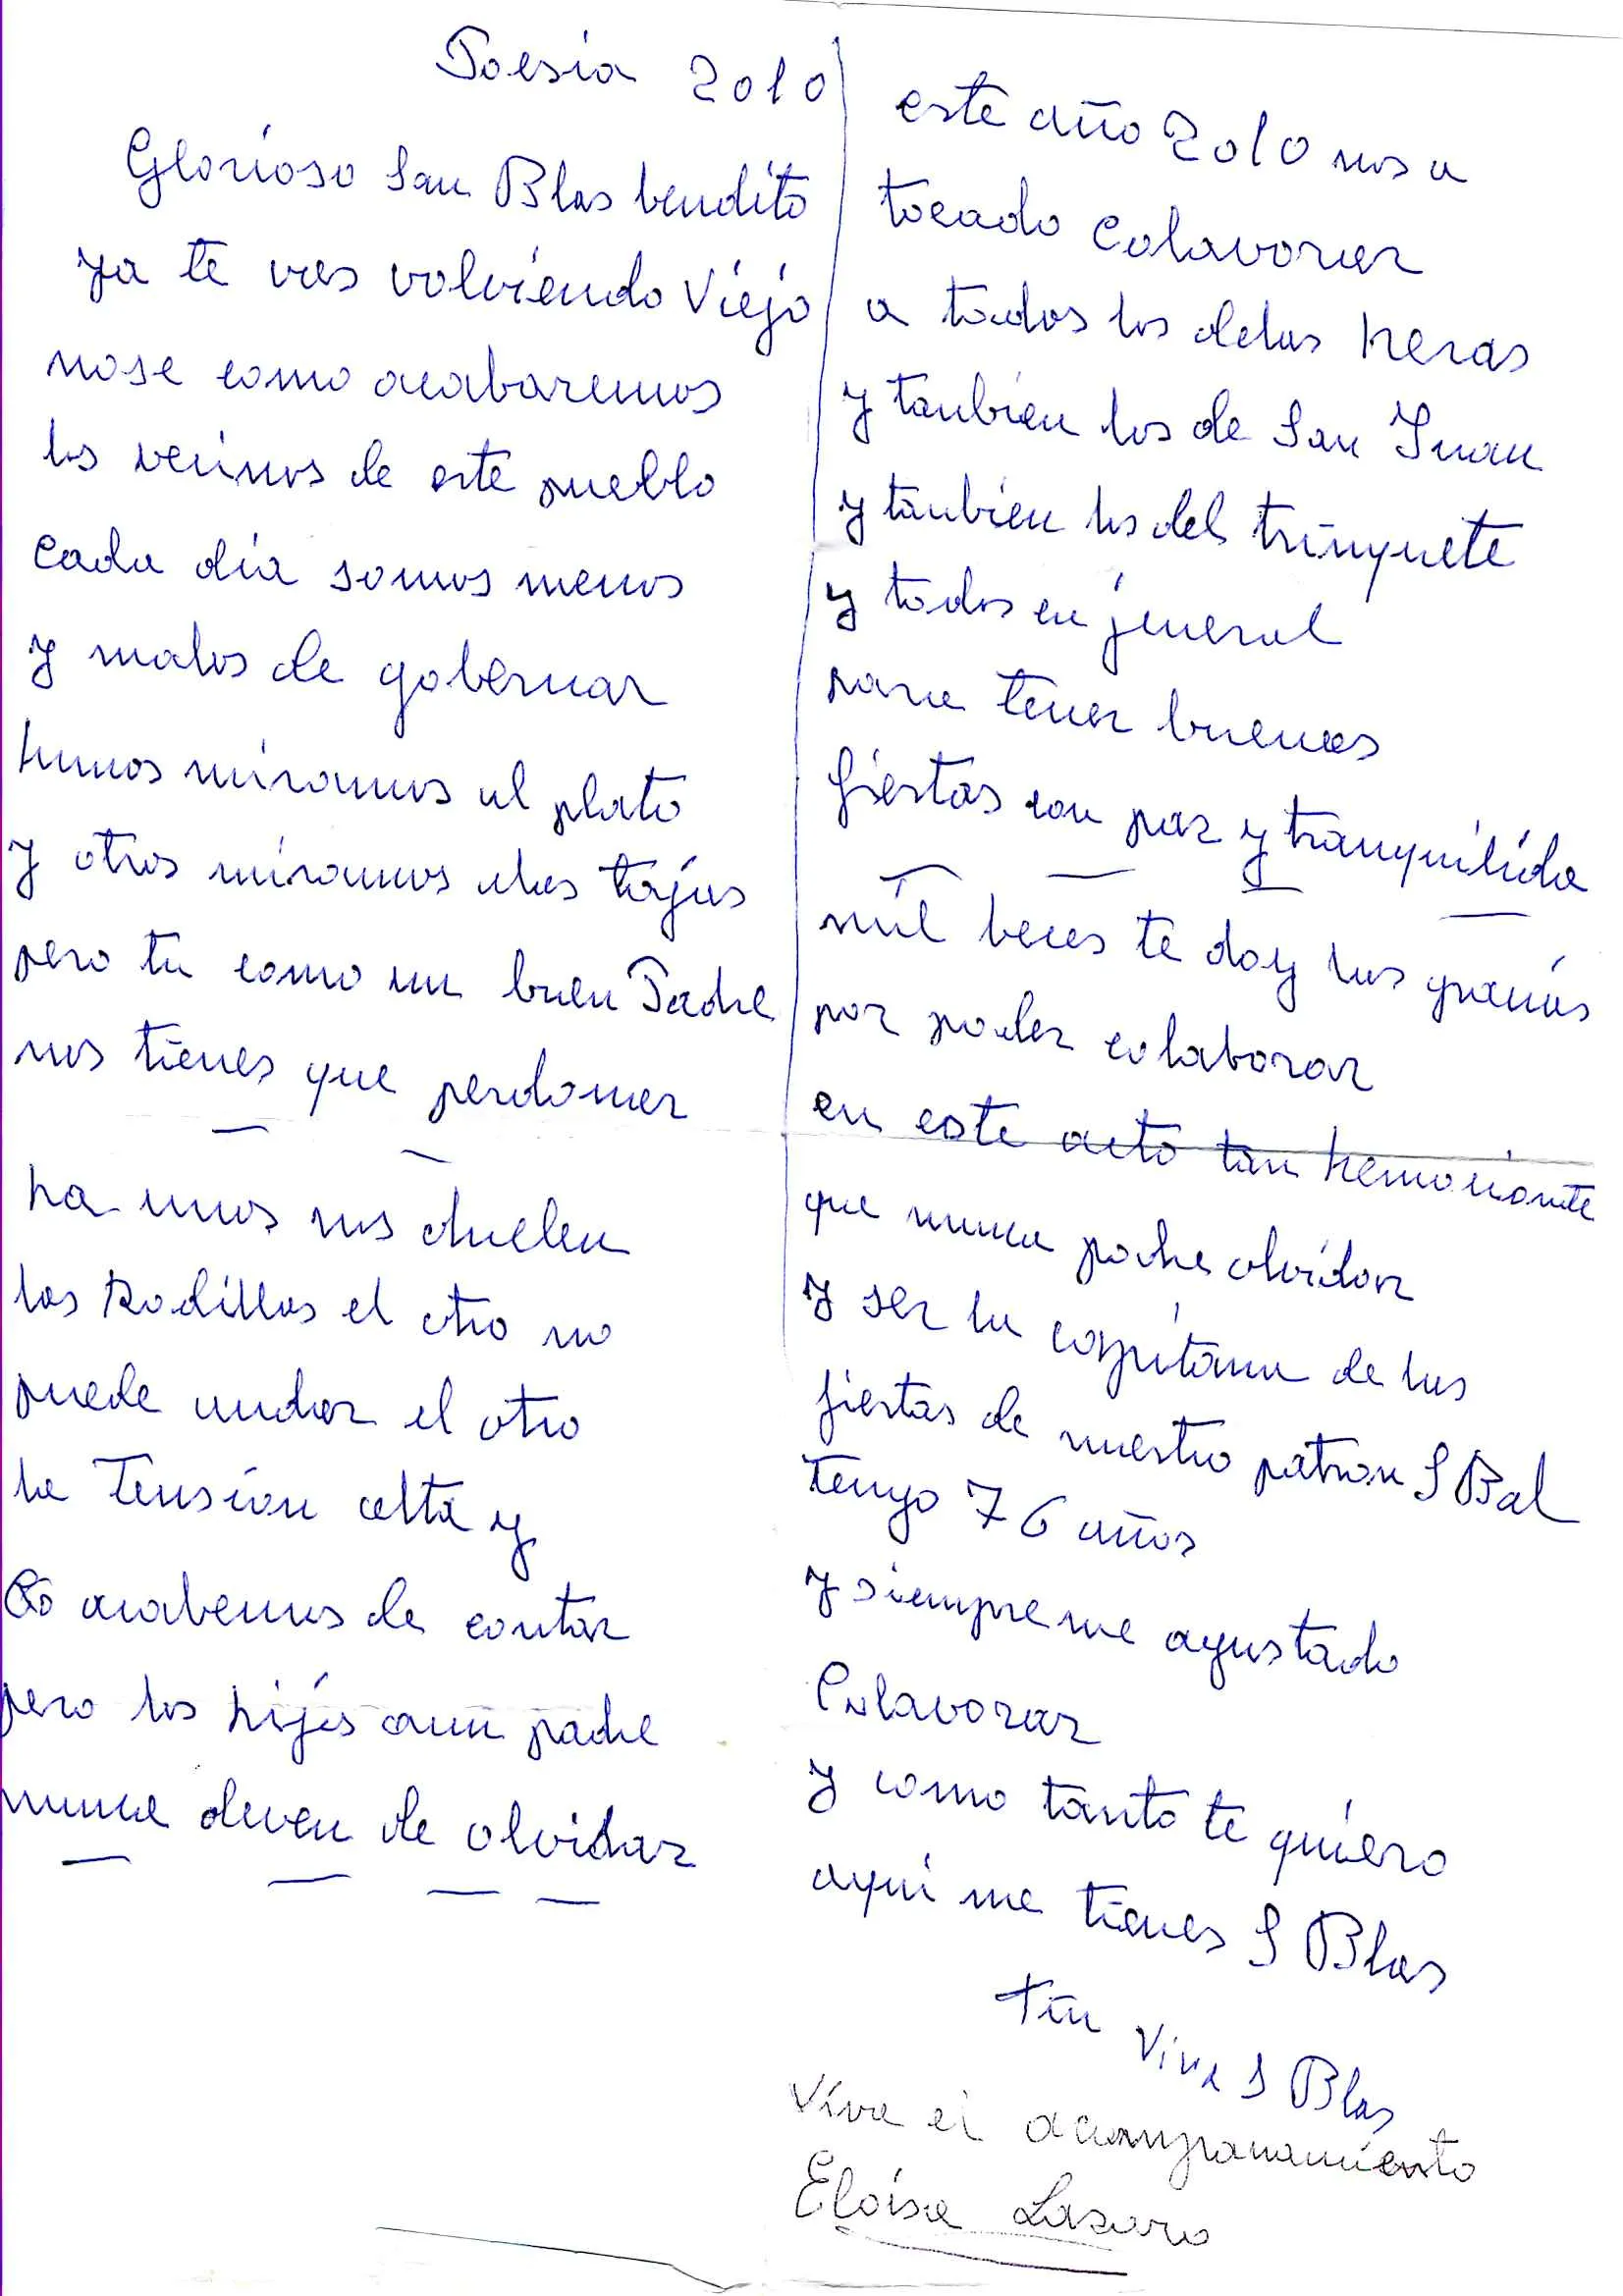 Poesia 2010
Glorioso San Blas bendito
ya te vas volviendo viejo
nose como acabaremos
los vecinos de este pueblo
cada dia somos menos
y malos de gobernar
hunos miramos al plato
y otros miramos alas tajas
pero tu como un buen Padre
nos tienes que perdonar
ha unos nos duelen
las Rodillas el otro no
puede andar el otro
la Tension alta y
acabemos de contar
pero los hijos aun padre
nunca deven de olvidar
este año 2010 nos a
tocado colavorar
a todos los delas heras
y tanbien los de San Juan
y tanbien los del trinquete
y todos en jeneral
para tener buenas
fiestas con paz y tranquilida
mil beces te doy las gracias
por poder colaborar
en este acto tan hemocionante
que nunca podre olvidar
y ser la capitana de las
fiestas de nuestro patron S Bal
tengo 76 años
y siempre me agustado
Colavorar
y como tanto te quiero
aqui me tienes S Blas
Fin Viva S Blas
Viva el acompanamiento
Eloisa Lasaro